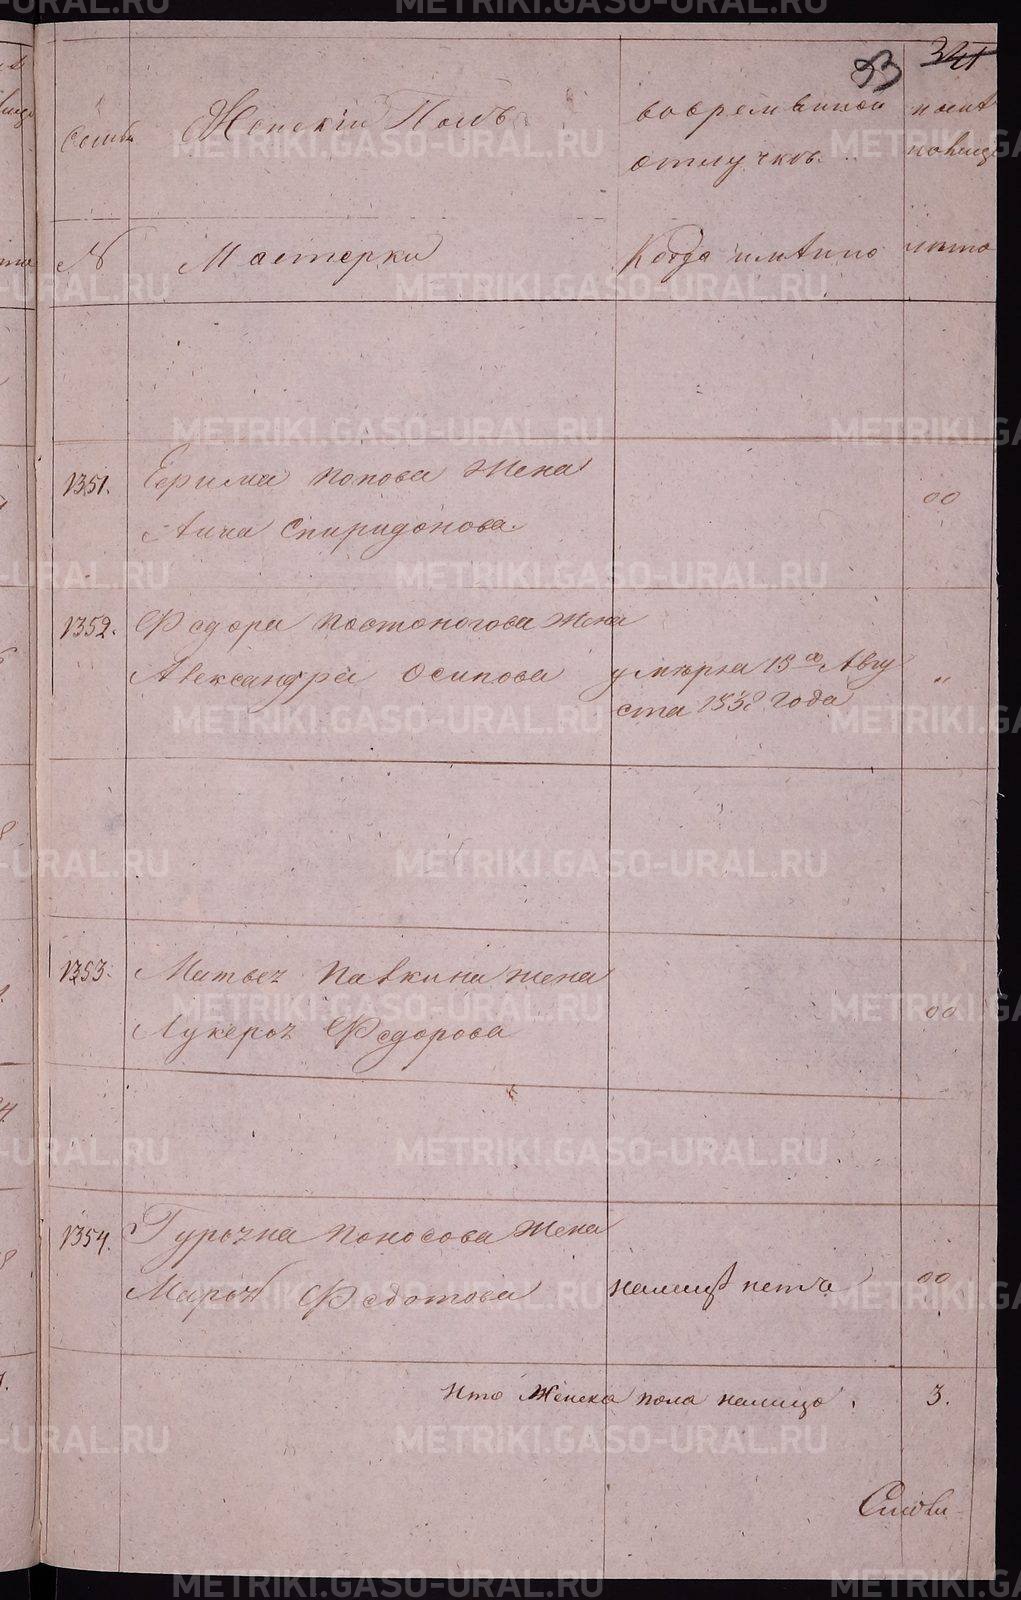 93 341
Семьи Женскій Полъ вовременной нынѣ
отлучкѣ. налицо
№ Мастерки Когда имѣнно лѣта
1351. Ефима Попова Жена 00
Анна Спиридонова.
1352. Федора Постоногова жена
Александра Осипова умерла 13го Авгу "
ста 1838 года
1353. Матвея Павкина жена
Лукерья Федорова 00
1354. Поносова Жена
Марья Федотова налицѣ нетъ 00
Итого Женска пола налицо. 3.
METRIKI.GASO-URAL.RU